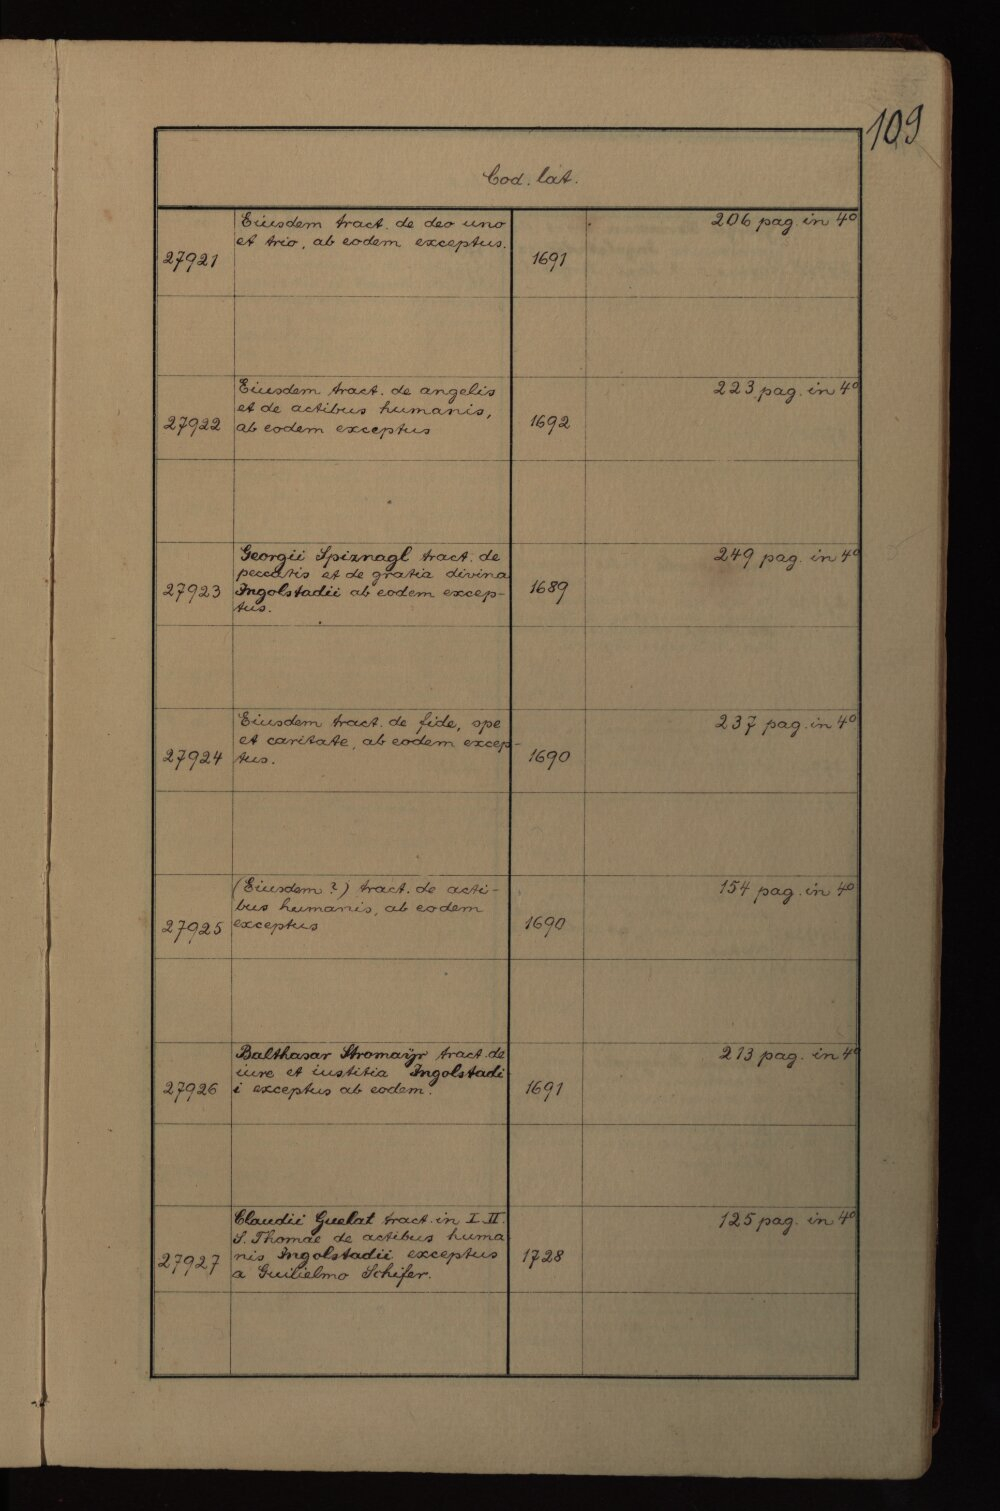 109
Cod. lat.
Eiusdem tract. de deo uno
et trio, ab eodem exceptus.
27921
1691
206 pag. in 4º
Eiusdem tract. de angelis
et de actibus humanis,
ab eodem exceptus
27922
1692
223 pag. in 4º
Georgii Spiznagl tract. de
peccatis et de gratia divina
Ingolstadii ab eodem excep-
tus.
27923
1689
249 pag. in 4º
Eiusdem tract. de fide, spe
et caritate, ab eodem excep-
tus.
27924
1690
237 pag. in 4º
(Eiusdem ?) tract. de acti-
bus humanis, ab eodem
exceptus
27925
1690
154 pag. in 4º
Balthasar Stromaÿr tract. de
iure et iustitia Ingolstadi
i exceptus ab eodem.
27926
1691
213 pag. in 4º
Claudii Guelat tract. in I. II.
S. Thomae de actibus huma
nis Ingolstadii exceptus
a Guilielmo Schifer.
27927
1728
125 pag. in 4º